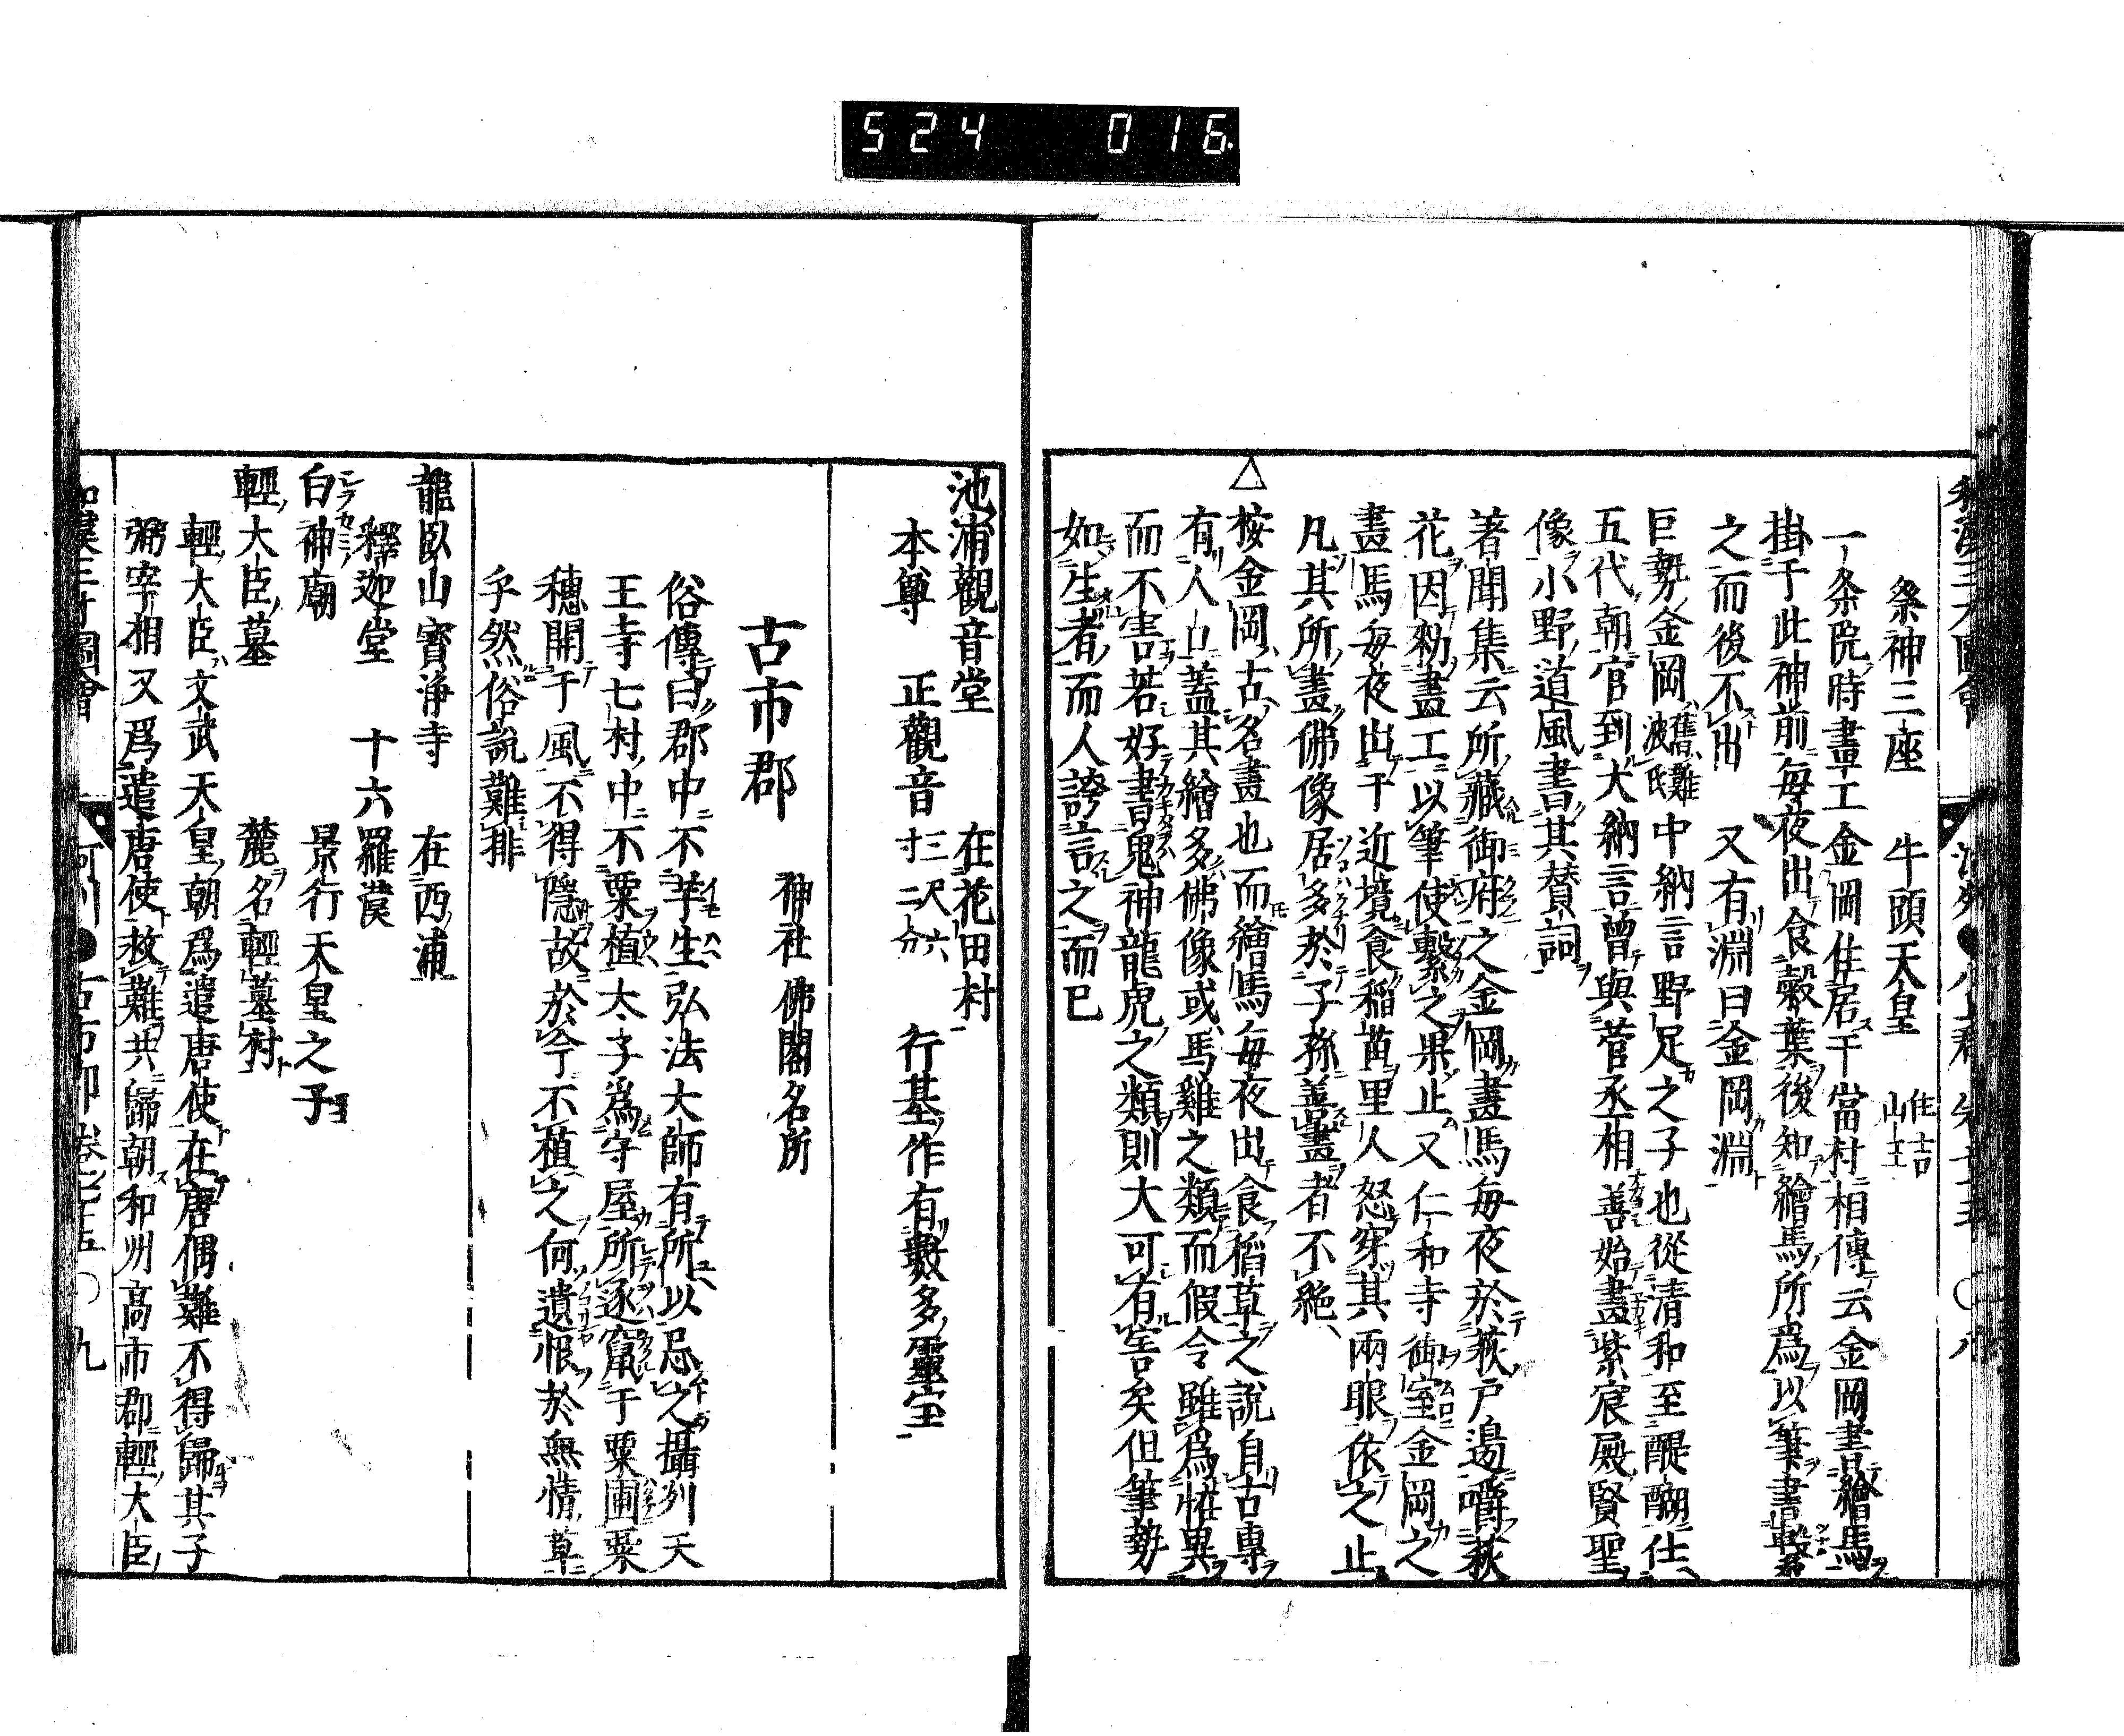 524 016
祭神三座 牛頭天皇 住吉 山王
一条院時畫工金岡住居于當村相傳云金岡書繪馬
掛于此神前毎夜出食穀葉後知繪馬所爲以筆書繫
之而後不出 又有淵曰金岡淵
巨勢金岡 舊難波氏 中納言野足之子也從清和至醍醐仕
五代朝官到大納言曾與菅丞相善始畫紫宸殿賢聖
像小野道風書其賛詞
著聞集云所藏御府之金岡畫馬毎夜於萩戸邉嚼萩
花因勑畫工以筆使繫之果止又仁和寺御室金岡之
畫馬毎夜出于近境食稲苗里人怒穿其兩眼依之止
凡其所畫佛像居多於子孫善畫者不絶
△按金岡古名畫也而繪馬毎夜出食稻草之說自古專
有人口蓋其繪多佛像或馬雞之類而假令雖爲恠異
而不害若好書鬼神龍虎之類則大可有害矣但筆勢
如生者而人誇言之而已
池浦觀音堂 在花田村
本尊 正觀音 三尺六寸二分 行基作有數多靈宝
古市郡 神社佛閣名所
俗傳曰郡中不芋生弘法大師有所以忌之攝刕天
王寺七村中不粟植太子爲守屋所逐竄于粟圃粟
穗開于風不得隱故於今不植之何遺恨於無情草
乎然俗說難排
龍臥山寳浄寺 在西浦
釋迦堂 十六羅漢
白神廟 景行天皇之子
輕大臣墓 麓名輕墓村
輕大臣文武天皇朝爲遣唐使在唐偶難不得歸其子
弼宰相又爲遣唐使救難共歸朝和州高市郡輕大臣
河州●古市郡 卷七十五 〇九